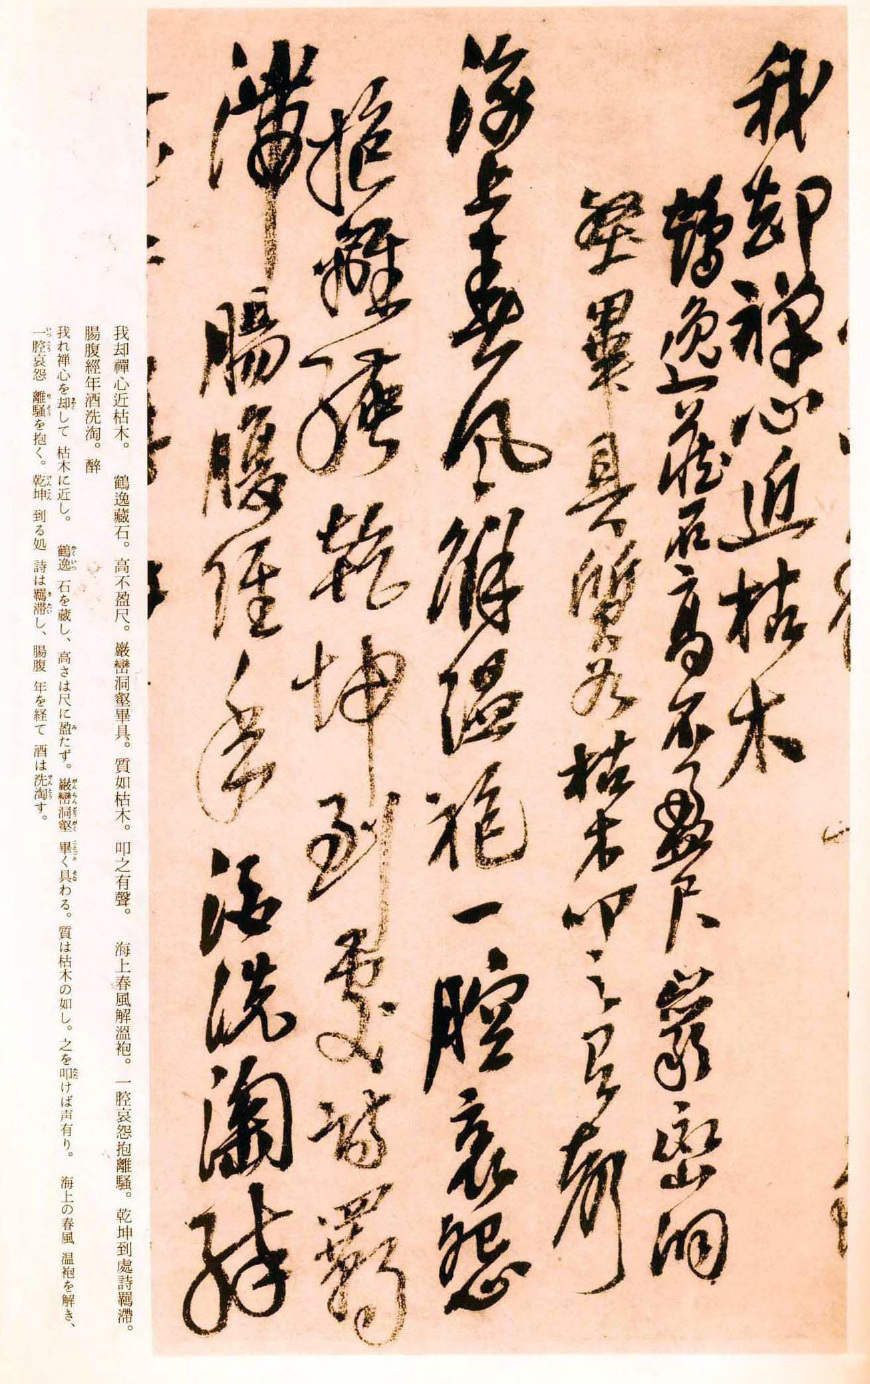 我却禪心近枯木
鶴逸藏石高不盈尺巖巒洞
壑畢具質如枯木叩之有聲
海上春風解溫袍一腔哀怨
抱離騷乾坤到處詩羈
滯腸腹經年酒洗淘醉
我却禪心近枯木。 鶴逸藏石。高不盈尺。巖巒洞壑畢具。質如枯木。叩之有聲。 海上春風解溫袍。一腔哀怨抱離騷。乾坤到處詩羈滯。
腸腹經年酒洗淘。醉
我れ禅心を却して 枯木に近し。 鶴逸 石を蔵し、高さは尺に盈たず。巌巒洞壑 畢く具わる。質は枯木の如し。之を叩けば声有り。 海上の春風 温袍を解き、
一腔哀怨 離騒を抱く。乾坤 到る処 詩は羈滞し、腸腹 年を経て 酒は洗淘す。